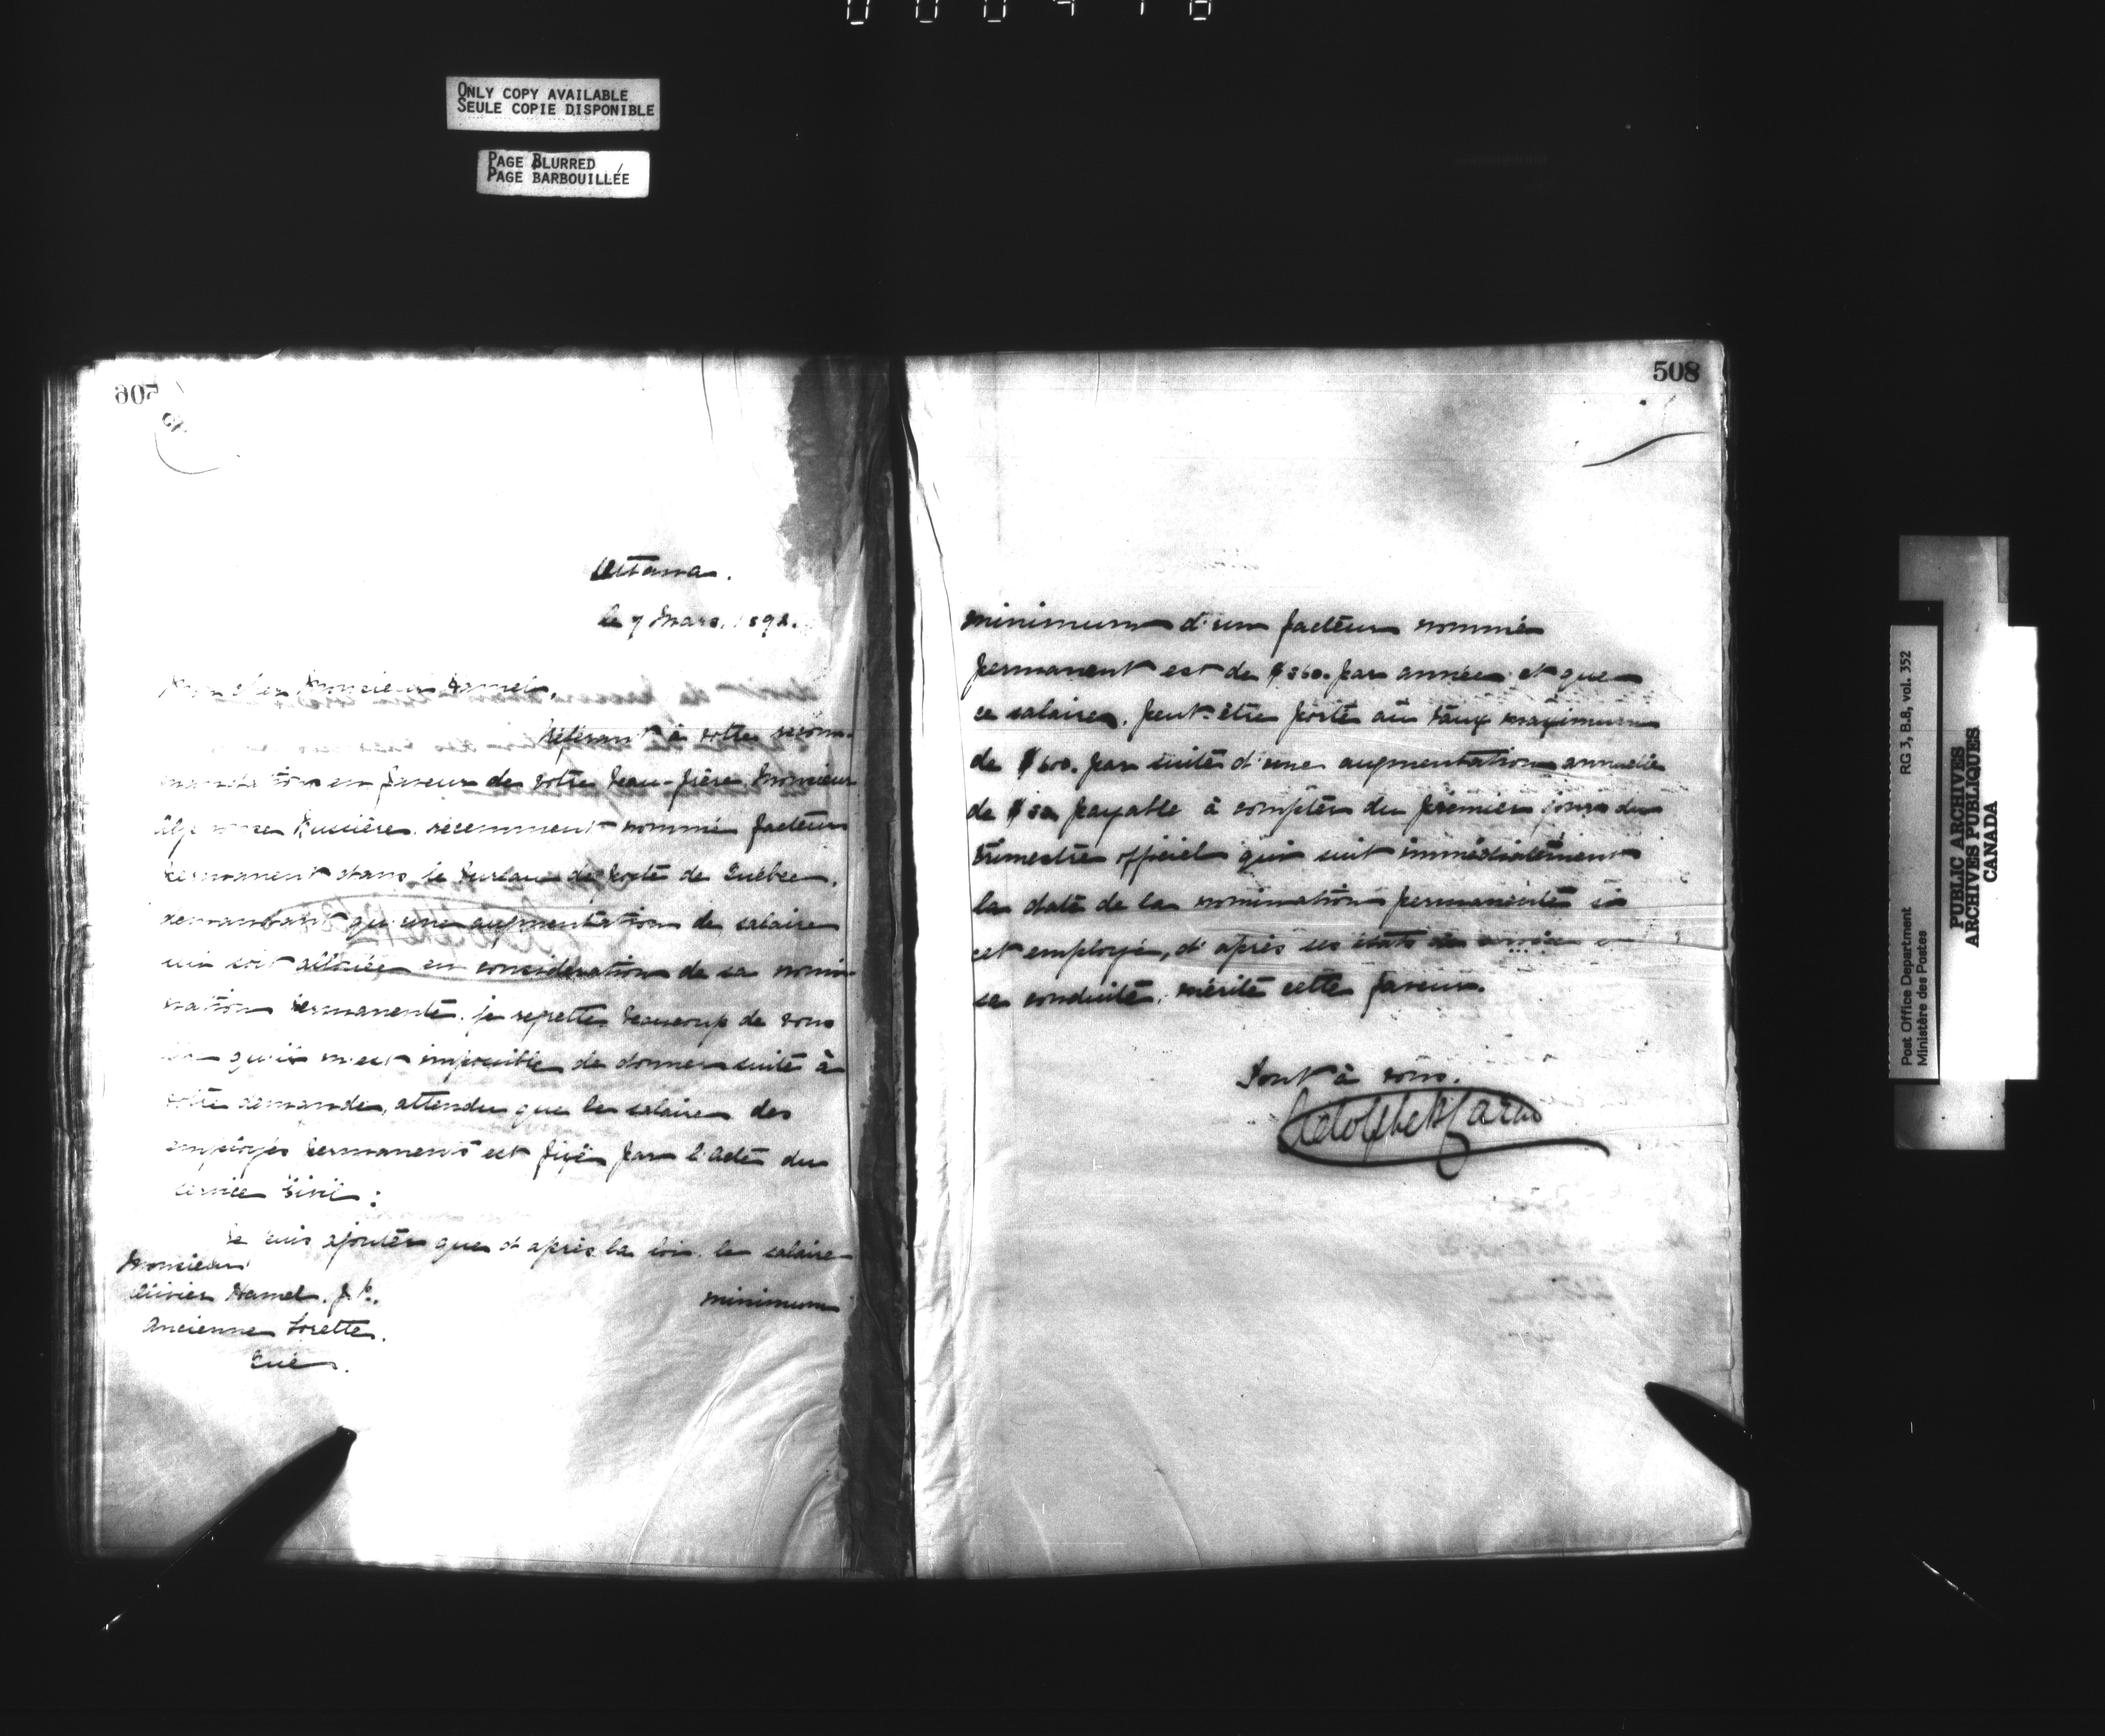 ONLY COPY AVAILABLE
SEULE COPIE DISPONIBLE
PAGE BLURRED
PAGE BARBOUILLÉE
507
Ottawa.
le 7 Mars, 1892.
Mon cher Monsieur Hamel,
Référant à votre recom-
mandation en faveur de votre beau-frère, Monsieur
Alphonse Russière, récemment nommé facteur
permanent dans le Bureau de Poste de Québec,
demandant qu'une augmentation de salaire
lui soit allouée en considération de sa nomi-
nation permanente, je regrette beaucoup de vous
dire qu'il m'est impossible de donner suite à
votre demande, attendu que le salaire des
employés permanents est fixé par l'acte du
service Civil;
Je puis ajouter que d'après la loi, le salaire
minimum
Monsieur
Olivier Hamel, J.P.,
Ancienne Lorette,
Qué.
508
minimum d'un facteur nommé
permanent est de $360. par année et que
ce salaire, peut être porté au taux maximum
de $600. par suite d'une augmentation annuelle
de $30 payable à compter du premier jour du
trimestre officiel qui suit immédiatement
la date de la nomination permanente si
cet employé, d'après ses états de service et
sa conduite, mérite cette faveur.
Tout à vous,
Adolphe P. Caron
Post Office Department RG 3, B.8, vol. 352
Ministère des Postes
PUBLIC ARCHIVES
ARCHIVES PUBLIQUES
CANADA